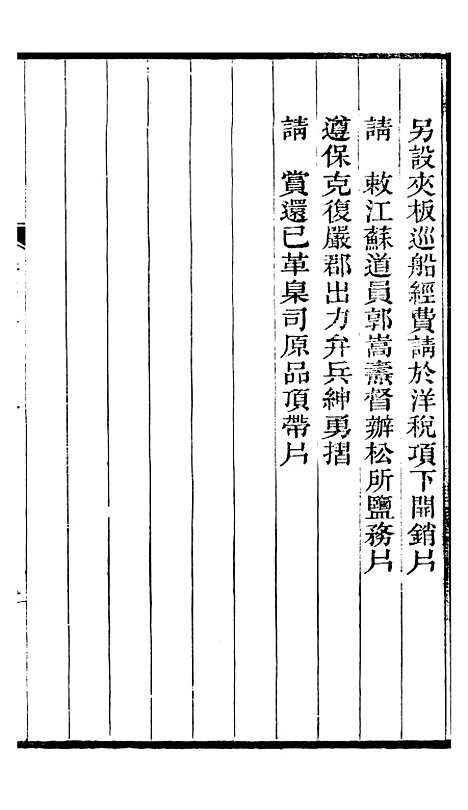 另設夾板巡船經費請於洋稅項下開銷片
請　敕江蘇道員郭嵩燾督辦松所鹽務片
遵保克復嚴郡出力弁兵紳勇摺
請　賞還已革臬司原品頂帶片